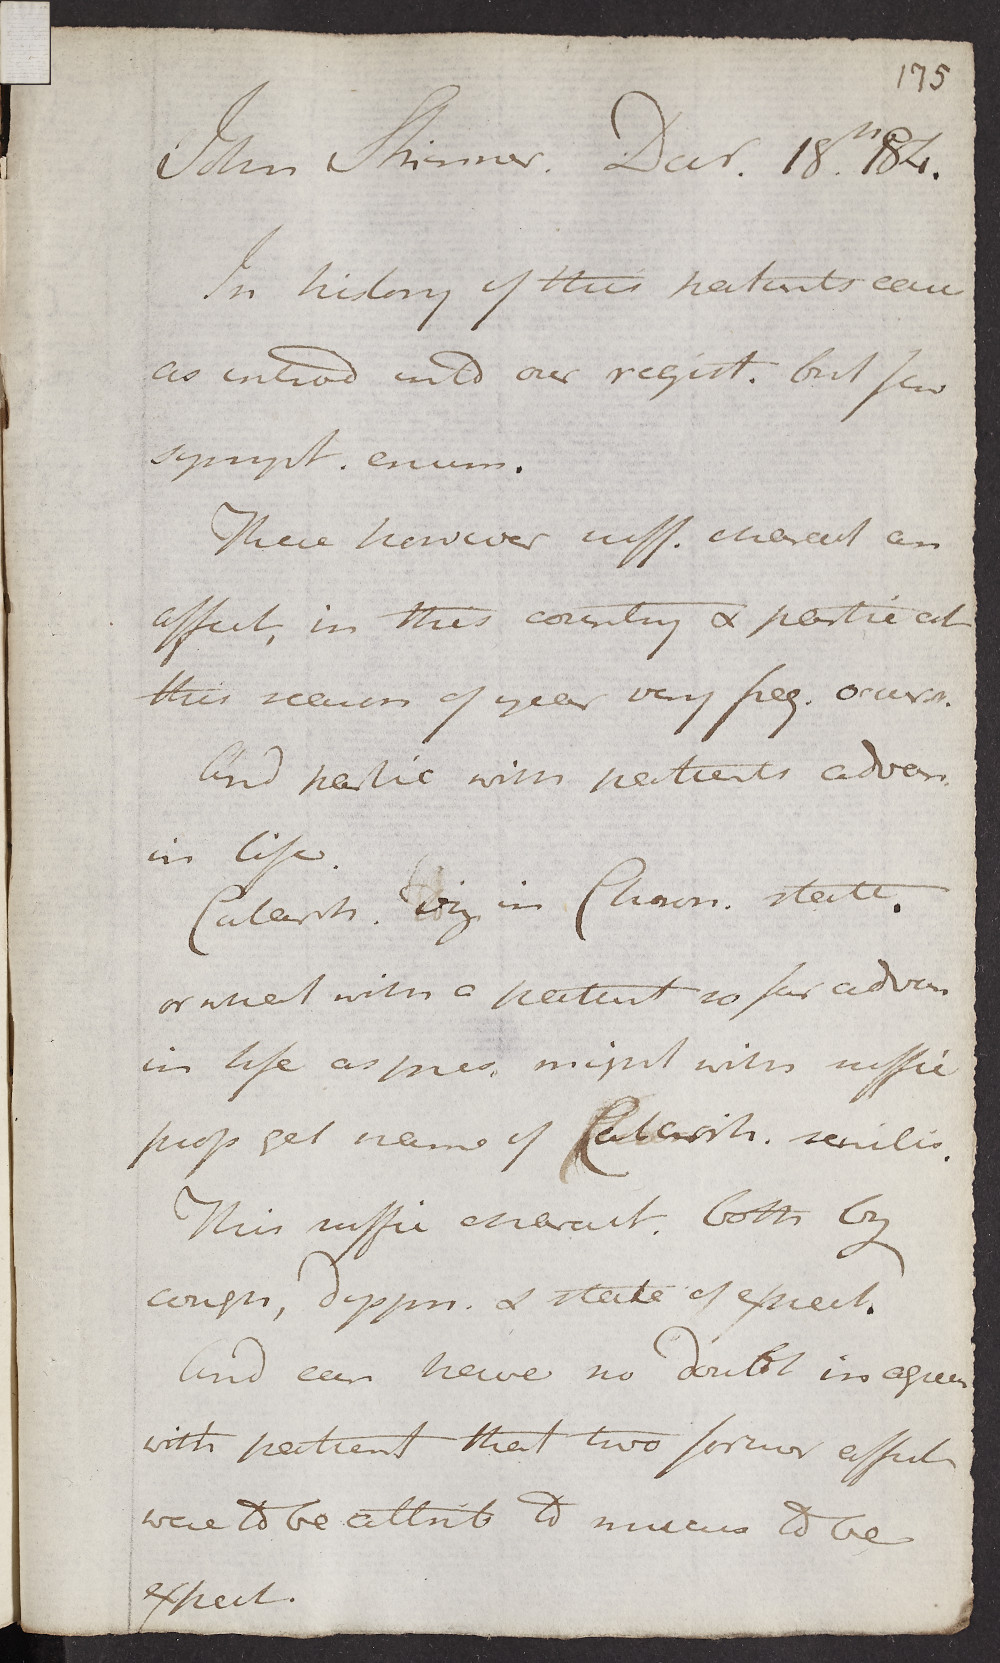 175
John Skinner. Dec. 18.th 84.
In history of this patients case
as introd into our regist. but few
sympt. enum.
These however suff. charact an
affect, in this country & partic at
this season of year very freq. occurr.
And partic with patients advan
in life.
Catarrh. viz in Chron. state.
or what with a patient so far advan
in life as pres. might with suffic
prop get name of Catarrh. senilis.
This suffic charact. both by
cough, dyspn. & state of expect.
And can have no doubt in agree
with patient that two former affect
were to be attrib to mucus to be
expect.